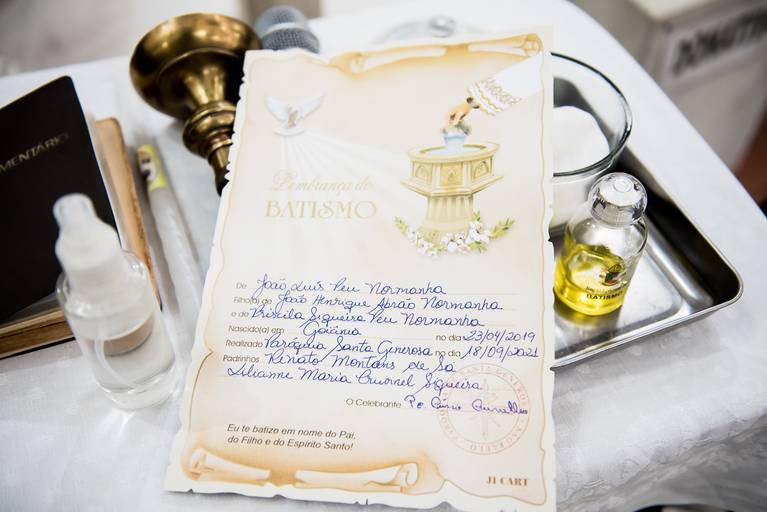 MENTÁRIO
Lembrança do
BATISMO
De João Luís Peu Normanha
Filho(a) de João Henrique Abrão Normanha
e de Priscila Siqueira Peu Normanha
Nascido(a) em Goiânia no dia 23/04/2019
Realizado Paróquia Santa Generosa no dia 18/09/2021
Padrinhos Renato Montans de Sá
Lilianne Maria Siqueira
O Celebrante Pe.
Eu te batizo em nome do Pai,
do Filho e do Espírito Santo!
JI CART
BATISMO